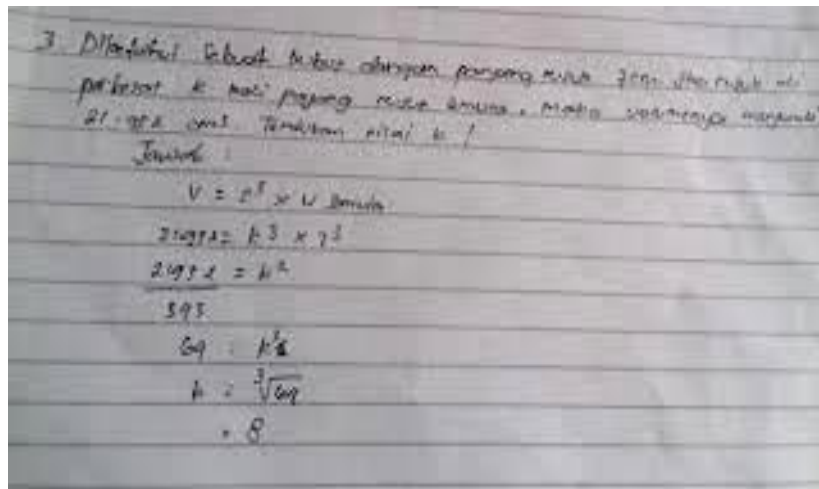 3. Diketahui sebuah kubus dengan panjang rusuk 7cm. Jika rusuk di
perbesar k kali panjang rusuk semula, maka volumenya menjadi
21.952 cm3 Tentukan nilai k !
Jawab :
V = k³ x V semula
21952 = k³ x 7³
21952 = k³
343
64 = k³
k = ³√64
= 8